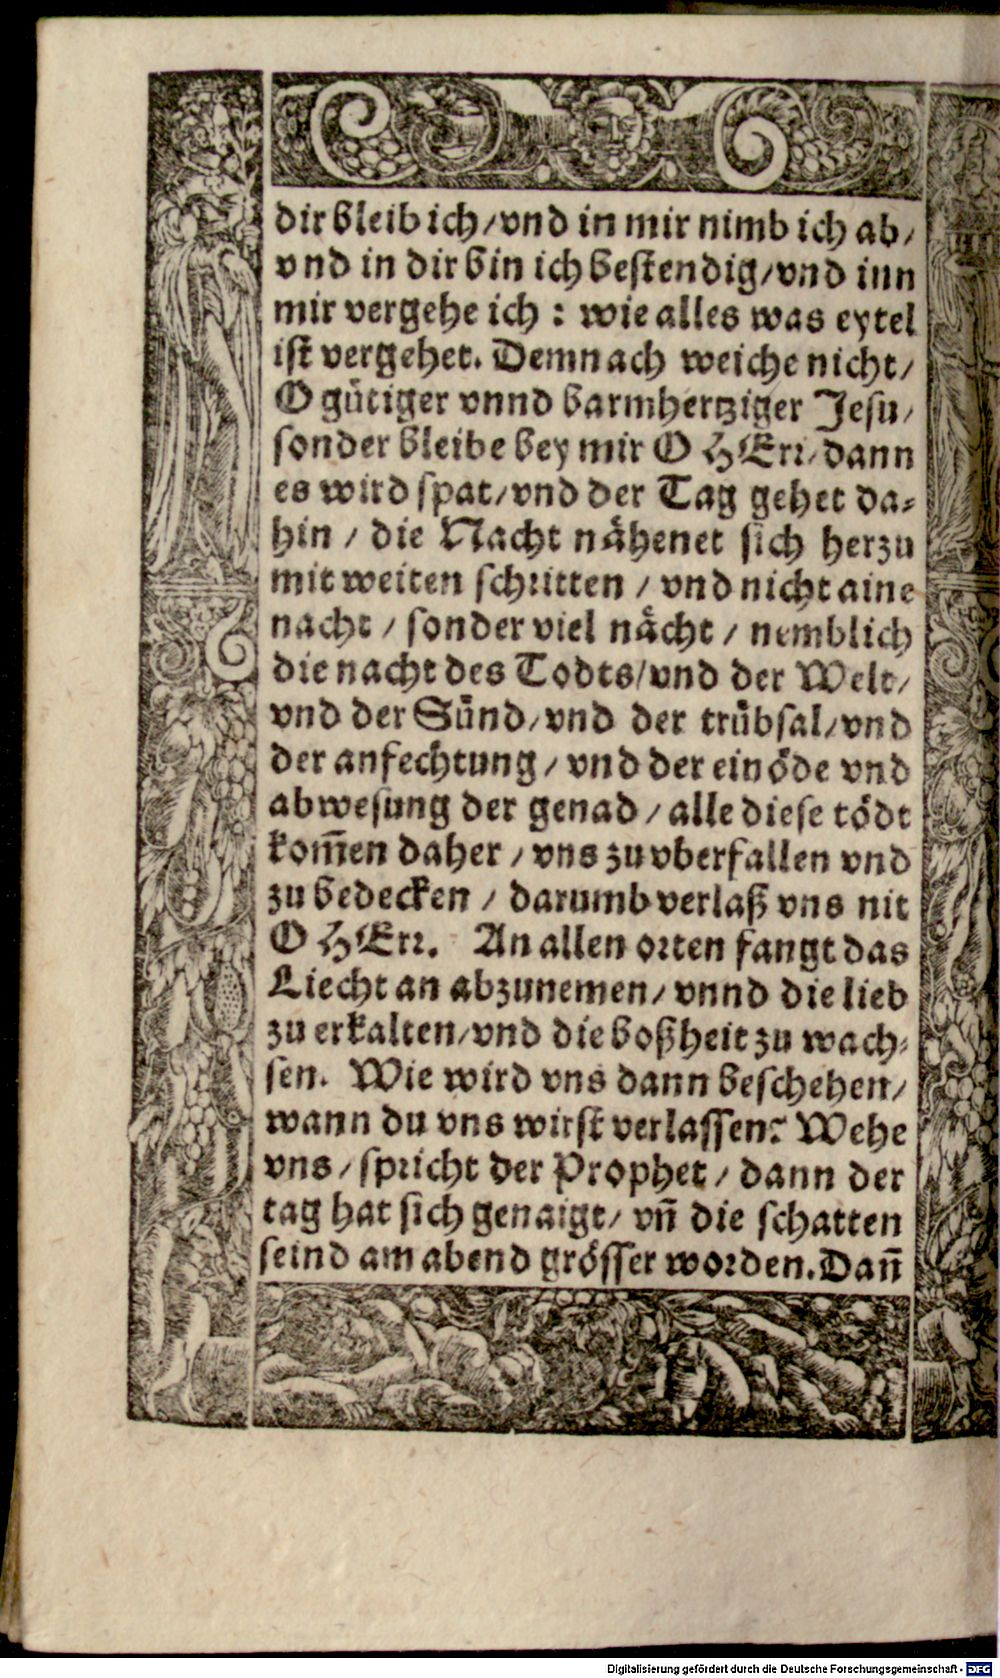 dir bleib ich/vnd in mir nimb ich ab/
vnd in dir bin ich bestendig/vnd inn
mir vergehe ich : wie alles was eytel
ist vergehet. Demnach weiche nicht/
O gütiger vnnd barmhertziger Jesu/
sonder bleibe bey mir O HErr/dann
es wird spat/vnd der Tag gehet da-
hin / die Nacht nähenet sich herzu
mit weiten schritten / vnd nicht aine
nacht / sonder viel nächt / nemblich
die nacht des Todts/vnd der Welt/
vnd der Sünd/vnd der trübsal/vnd
der anfechtung / vnd der einöde vnd
abwesung der genad / alle diese tödt
kom̃en daher / vns zu vberfallen vnd
zu bedecken / darumb verlaß vns nit
O HErr. An allen orten fangt das
Liecht an abzunemen/ vnnd die lieb
zu erkalten/vnd die boßheit zu wach-
sen. Wie wird vns dann beschehen/
wann du vns wirst verlassen? Wehe
vns / spricht der Prophet / dann der
tag hat sich genaigt/ vñ die schatten
seind am abend grösser worden. Dañ
Digitalisierung gefördert durch die Deutsche Forschungsgemeinschaft - DFG